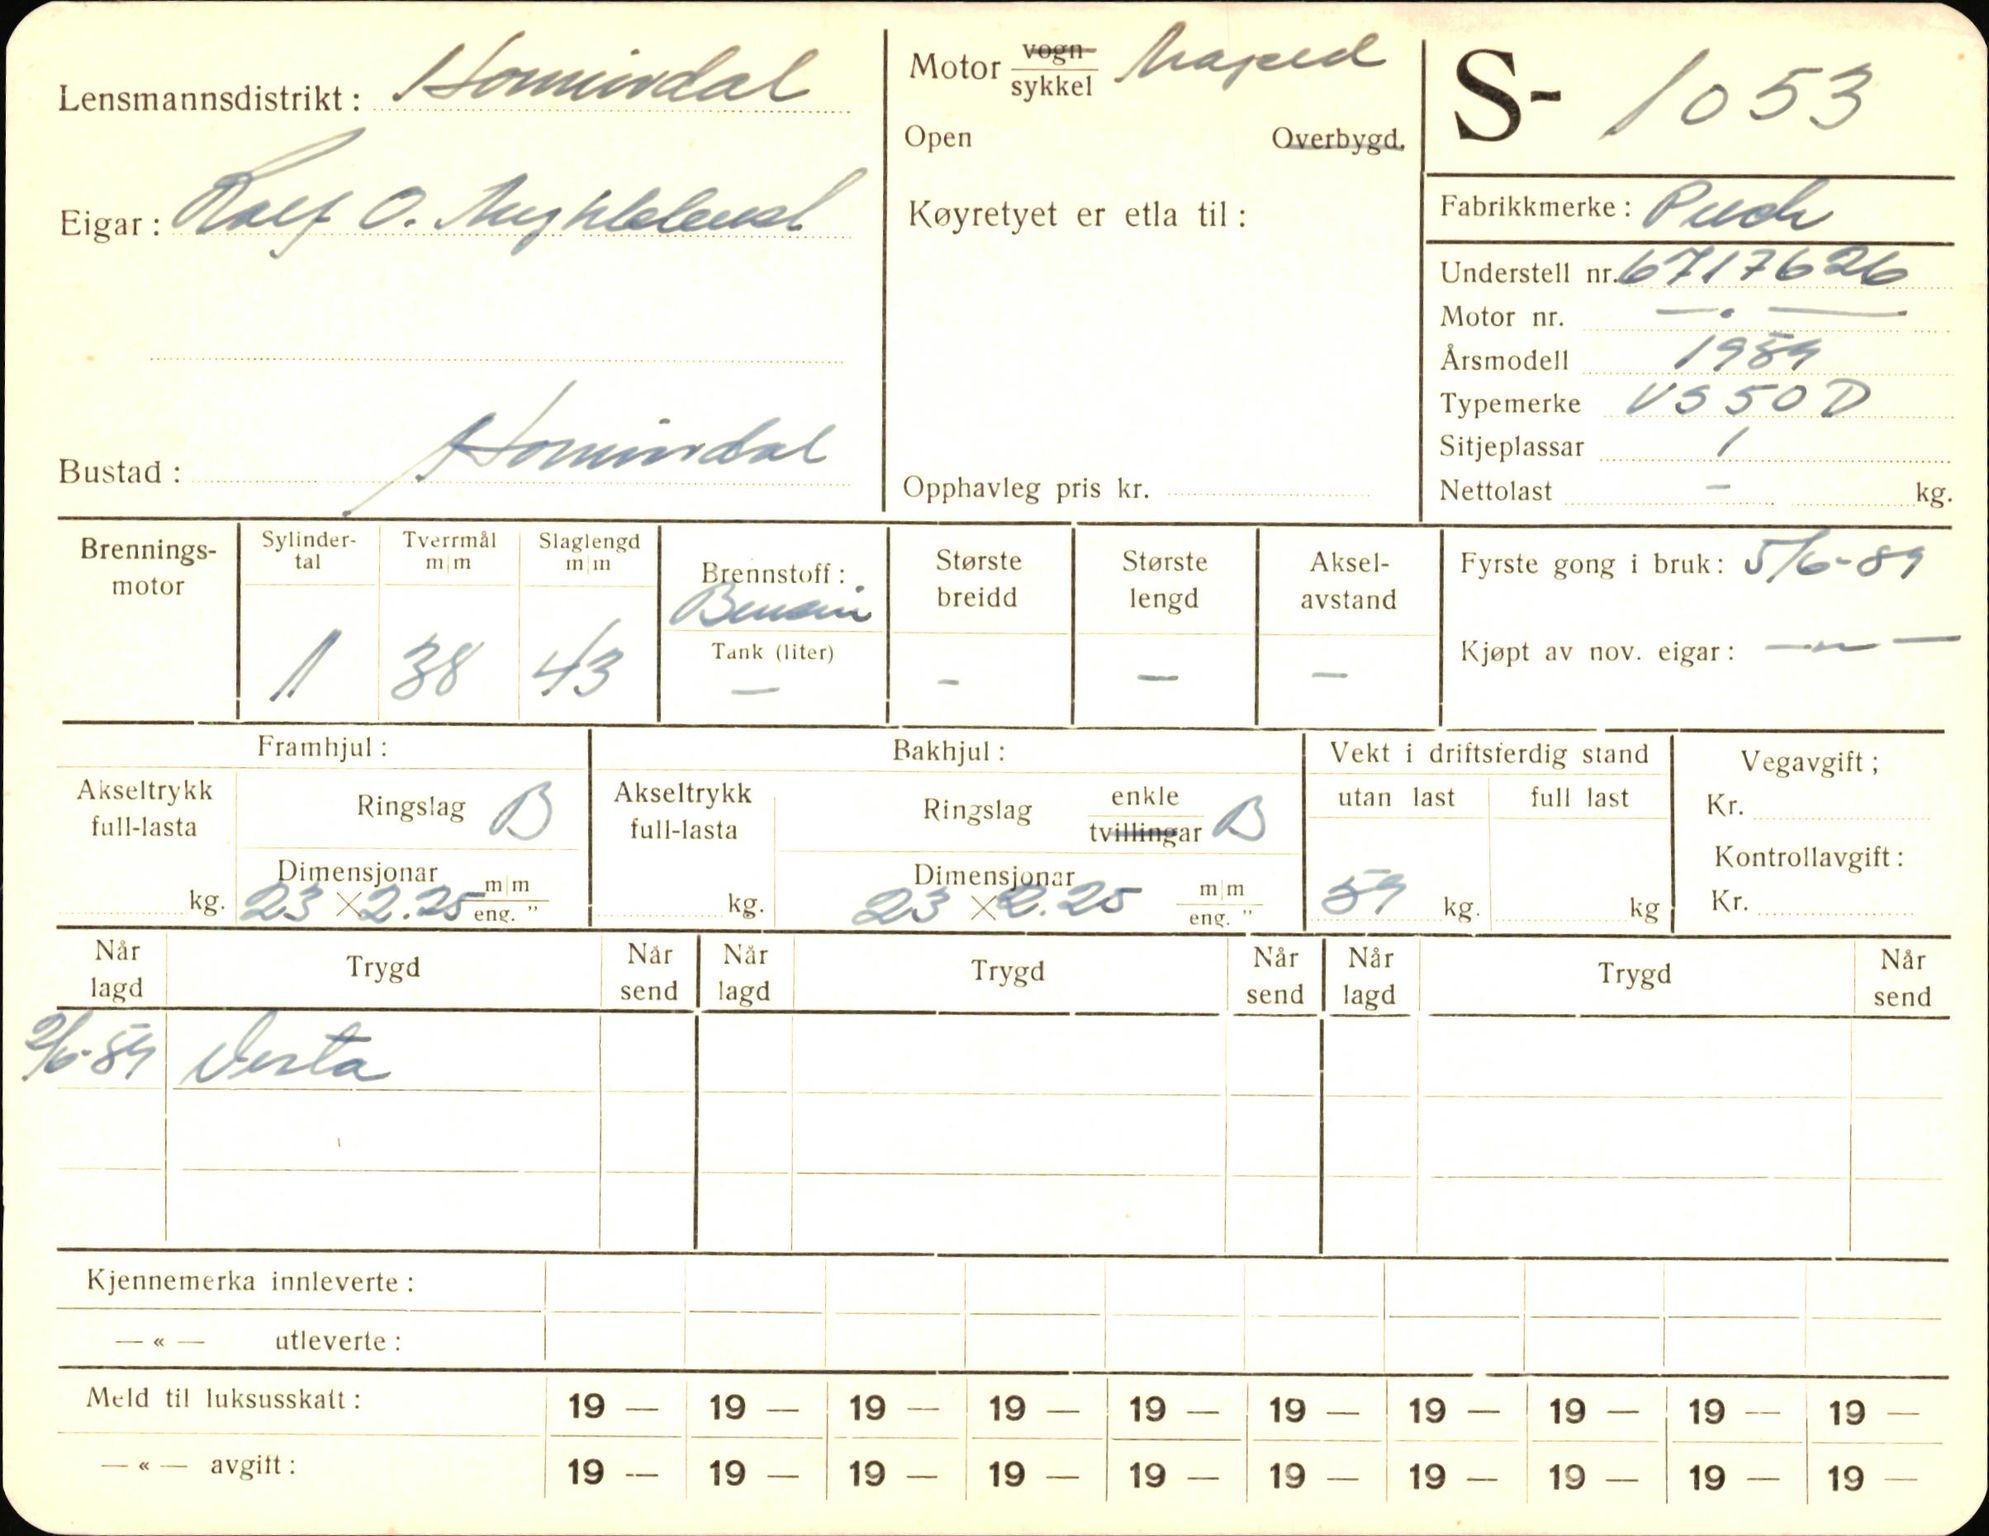 Lensmannsdistrikt: Hornindal
Eigar: Rolf O.
Bustad: Hornindal
Motor vogn/sykkel Moped
Open Overbygd.
Køyretyet er etla til:
Opphavleg pris kr.
S- 1053
Fabrikkmerke: Puch
Understell nr. 6717626
Motor nr. — " —
Årsmodell 1959
Typemerke VS 50 D
Sitjeplassar 1
Nettolast - kg.
Brennings-
motor
Sylinder-
tal
1
Tverrmål
m/m
38
Slaglengd
m/m
43
Brennstoff:
Bensin
Tank (liter)
—
Største
breidd
-
Største
lengd
-
Aksel-
avstand
-
Fyrste gong i bruk: 5/6-59
Kjøpt av nov. eigar: — " —
Framhjul:
Akseltrykk
full-lasta
kg.
Ringslag B
Dimensjonar
23 × 2.25 m/m
eng. "
Bakhjul:
Akseltrykk
full-lasta
kg.
Ringslag enkle
tvillingar B
Dimensjonar
23 × 2.25 m/m
eng. "
Vekt i driftsferdig stand
utan last full last
59 kg. kg
Vegavgift;
Kr.
Kontrollavgift:
Kr.
Når
lagd Trygd Når
send Når
lagd Trygd Når
send Når
lagd Trygd Når
send
2/6-59 Vesta
Kjennemerka innleverte:
— « — utleverte:
Meld til luksusskatt: 19 — 19 — 19 — 19 — 19 — 19 — 19 — 19 — 19 — 19 —
— « — avgift: 19 — 19 — 19 — 19 — 19 — 19 — 19 — 19 — 19 — 19 —